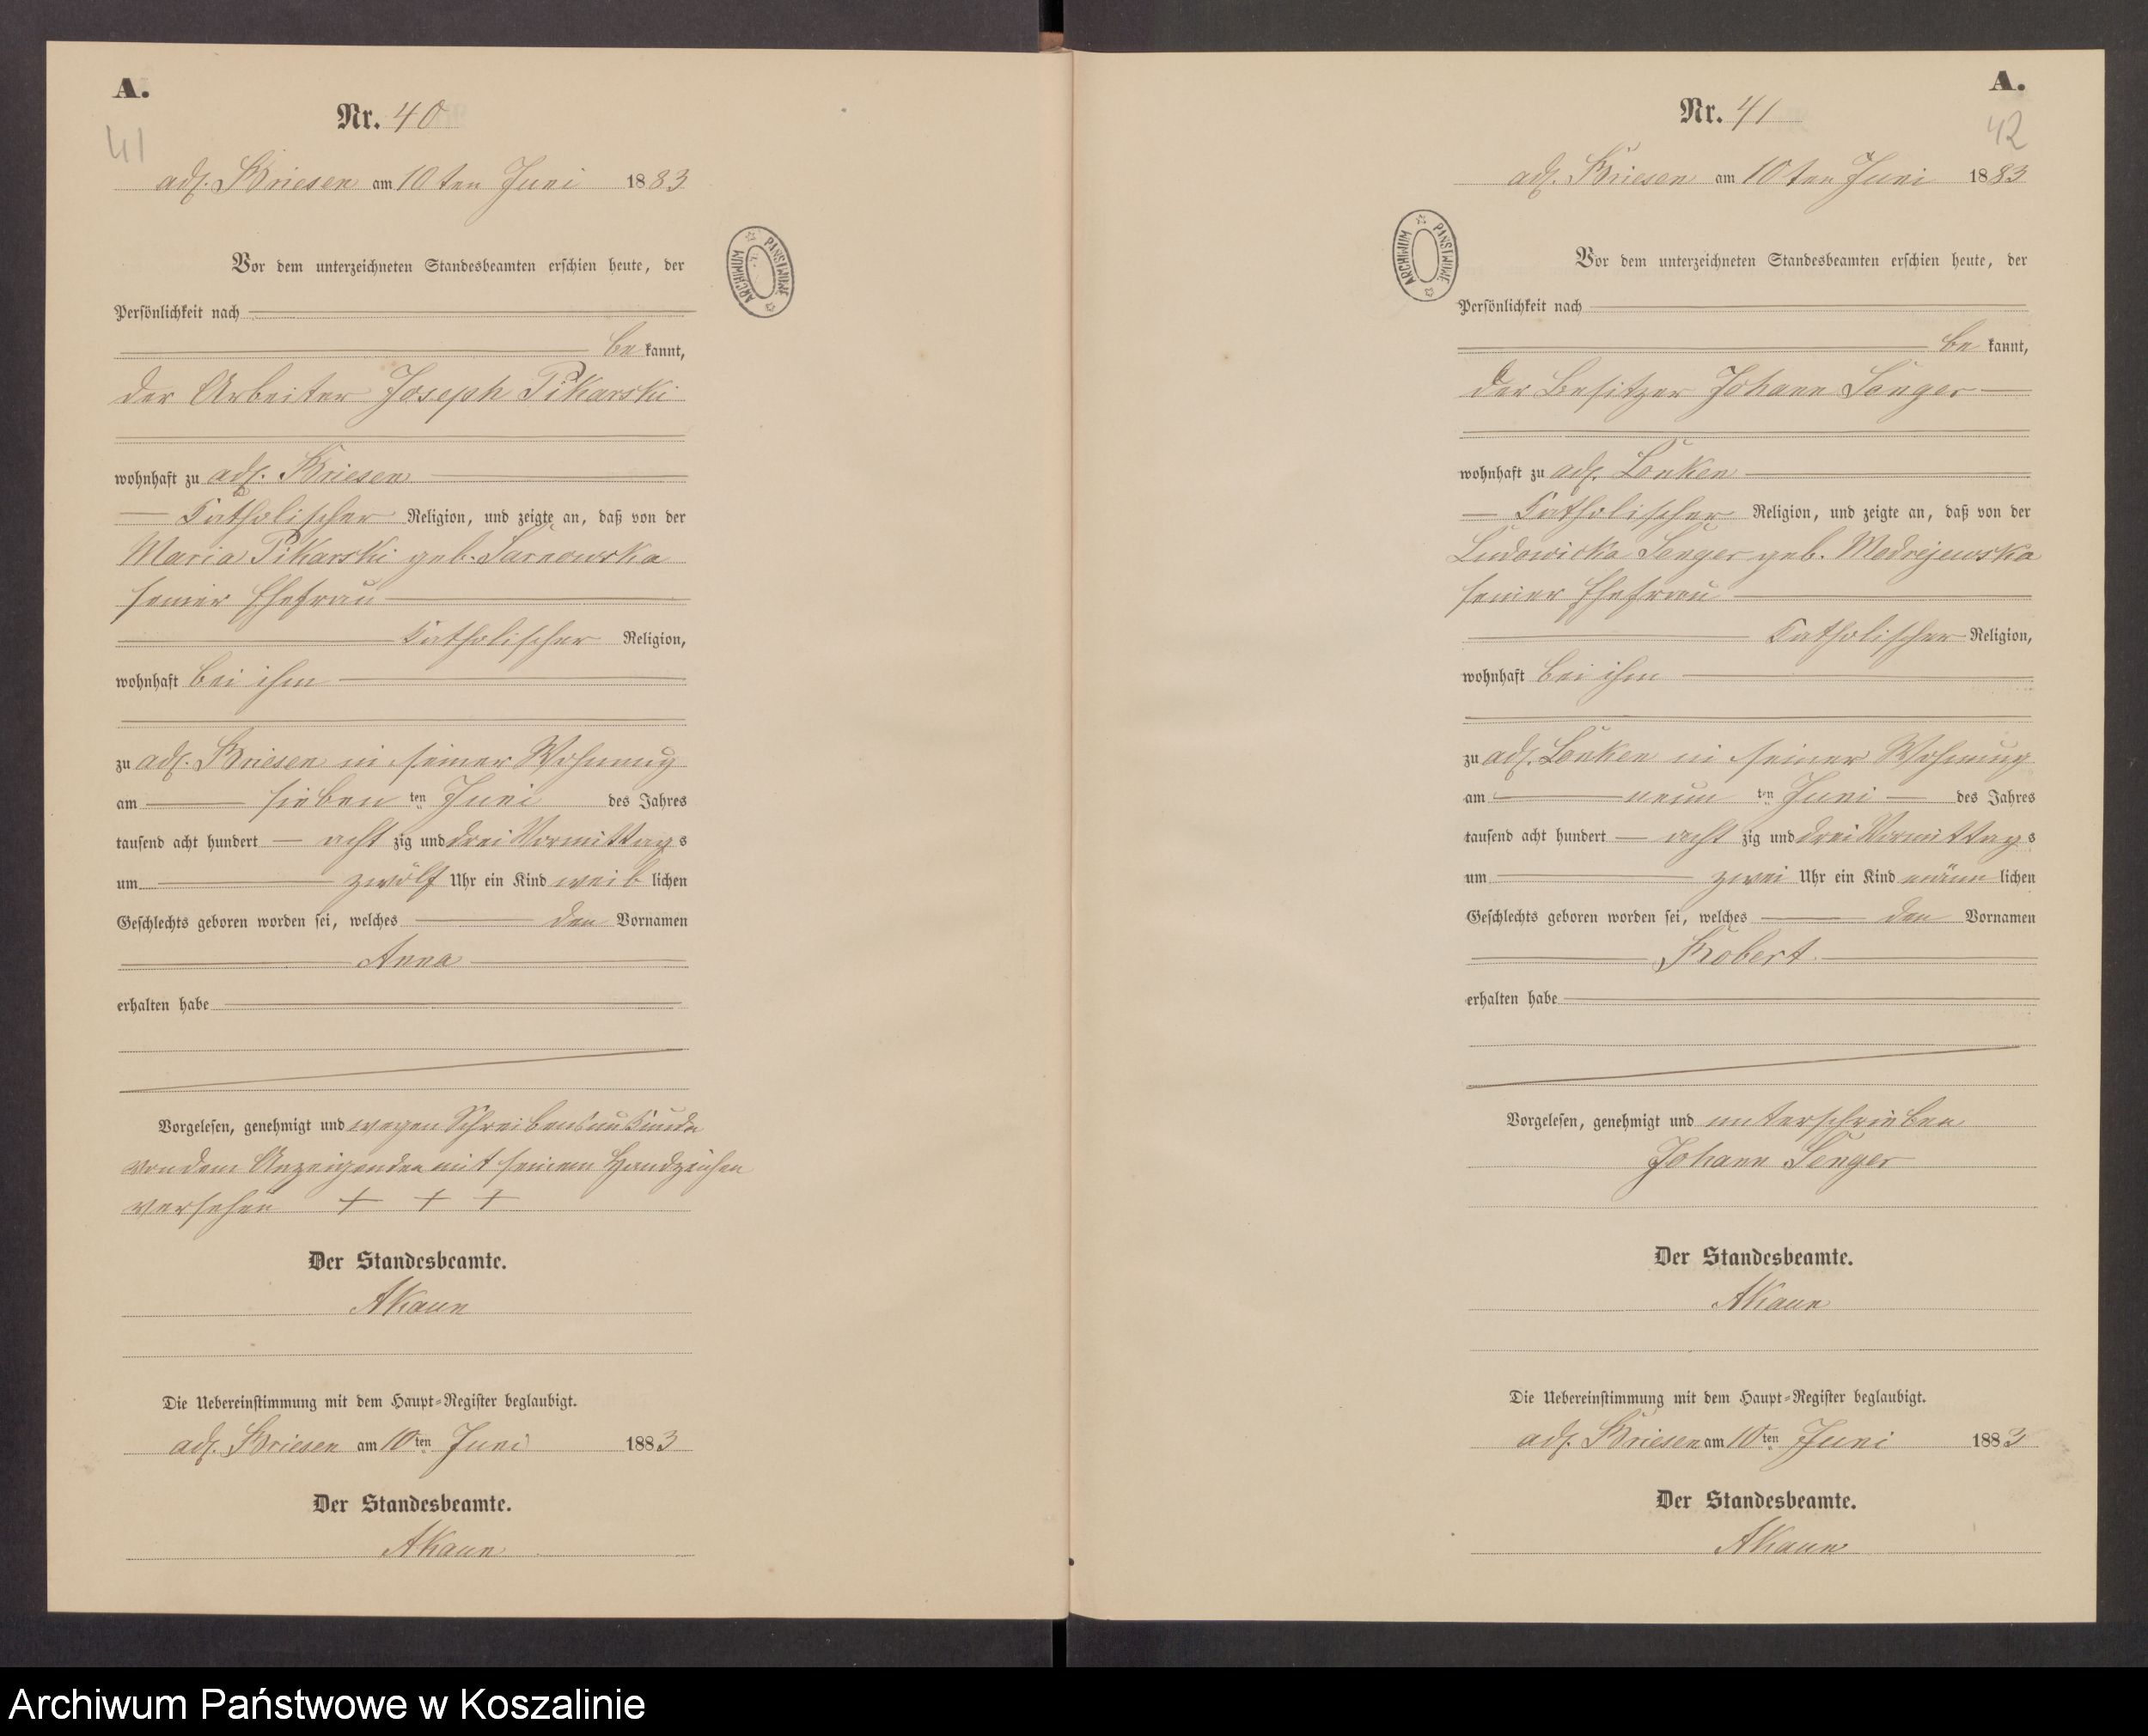 A.
Nr. 40
41
adl. Briesen am 10ten Juni 1883
Vor dem unterzeichneten Standesbeamten erschien heute, der
Persönlichkeit nach
be kannt,
der Arbeiter Joseph Pikarski
wohnhaft zu adl. Briesen
Katholischer Religion, und zeigte an, daß von der
Maria Pikarski geb. Sarnowska
seiner Ehefrau
Katholischer Religion,
wohnhaft bei ihm
zu adl. Briesen in seiner Wohnung
am sieben ten Juni des Jahres
tausend acht hundert acht zig und drei Vormittags
um zwölf Uhr ein Kind weib lichen
Geschlechts geboren worden sei, welches den Vornamen
Anna
erhalten habe
Vorgelesen, genehmigt und wegen Schreibensunkunde
von dem Anzeigenden mit seinem Handzeichen
versehen + + +
Der Standesbeamte.
AKaun
Die Uebereinstimmung mit dem Haupt-Register beglaubigt.
adl. Briesen am 10ten Juni 1883
Der Standesbeamte.
AKaun
ARCHIWUM PAŃSTWOWE
A.
Nr. 41
42
adl. Briesen am 10ten Juni 1883
ARCHIWUM PAŃSTWOWE
Vor dem unterzeichneten Standesbeamten erschien heute, der
Persönlichkeit nach
be kannt,
der Besitzer Johann Senger
wohnhaft zu adl. Lonken
Katholischer Religion, und zeigte an, daß von der
Ludowicka Senger geb. Modrejewska
seiner Ehefrau
Katholischer Religion,
wohnhaft bei ihm
zu adl. Lonken in seiner Wohnung
am neun ten Juni des Jahres
tausend acht hundert acht zig und drei Vormittags
um zwei Uhr ein Kind männ lichen
Geschlechts geboren worden sei, welches den Vornamen
Robert
erhalten habe
Vorgelesen, genehmigt und unterschrieben
Johann Senger
Der Standesbeamte.
AKaun
Die Uebereinstimmung mit dem Haupt-Register beglaubigt.
adl. Briesen am 10ten Juni 1883
Der Standesbeamte.
AKaun
Archiwum Państwowe w Koszalinie